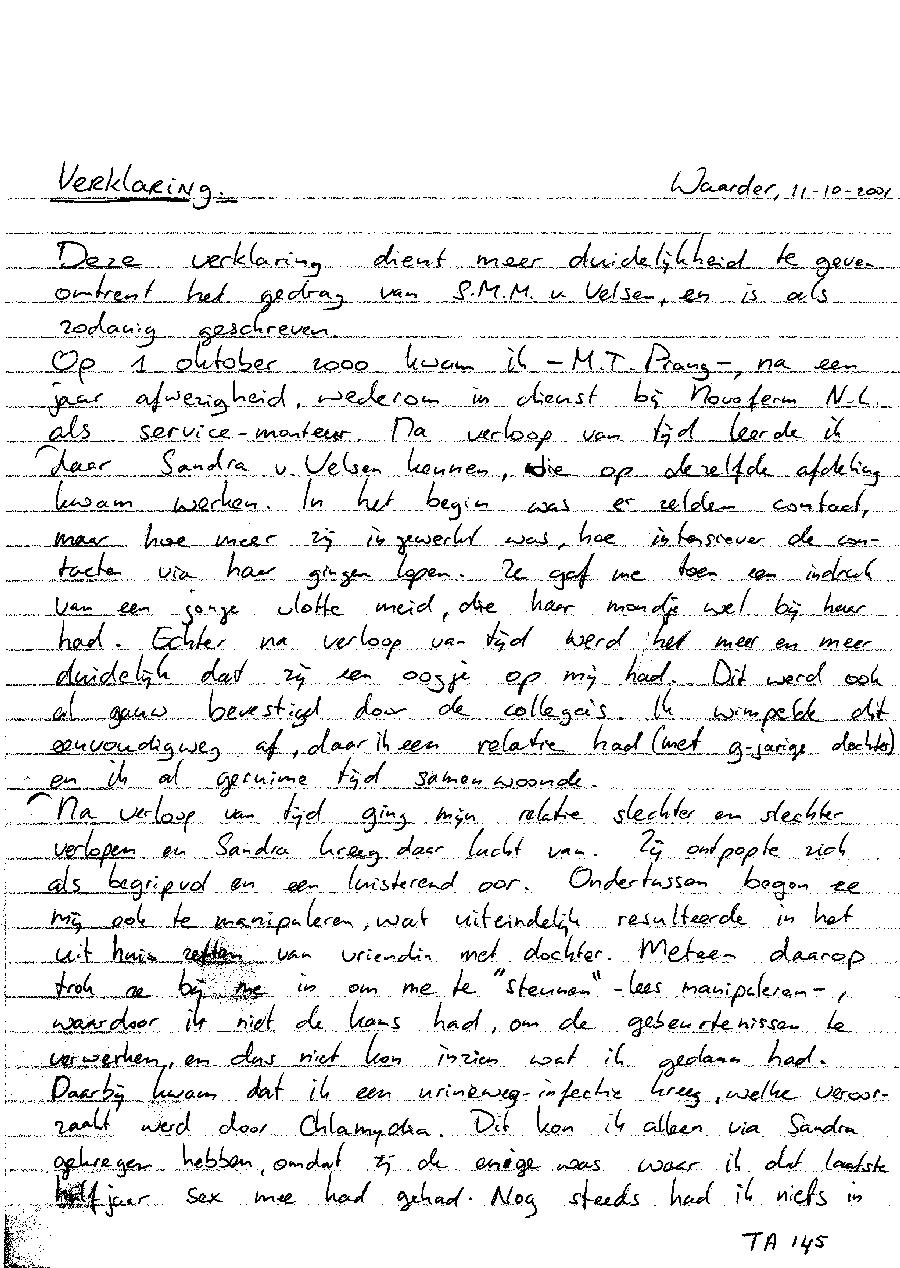 Verklaring.
Waarder, 11-10-2001
Deze verklaring dient meer duidelijkheid te geven
omtrent het gedrag van S.M.M. v Velsen, en is als
zodanig geschreven.
Op 1 oktober 2000 kwam ik - M.T. Prang -, na een
jaar afwezigheid, wederom in dienst bij Novoferm N.L.
als service-monteur. Na verloop van tijd leerde ik
daar Sandra v. Velsen kennen, die op dezelfde afdeling
kwam werken. In het begin was er zelden contact,
maar hoe meer zij ingewerkt was, hoe intensiever de con-
tacten via haar gingen lopen. Ze gaf me toen een indruk
van een jonge vlotte meid, die haar mondje wel bij haar
had. Echter na verloop van tijd werd het meer en meer
duidelijk dat zij een oogje op mij had. Dit werd ook
al gauw bevestigd door de collega's. Ik wimpelde dit
eenvoudigweg af, daar ik een relatie had (met 9-jarige dochter)
en ik al geruime tijd samenwoonde.
Na verloop van tijd ging mijn relatie slechter en slechter
verlopen en Sandra kreeg daar lucht van. Zij ontpopte zich
als begripvol en een luisterend oor. Ondertussen begon ze
mij ook te manipuleren, wat uiteindelijk resulteerde in het
uit huis zetten van vriendin met dochter. Meteen daarop
trok ze bij me in om me te "steunen" - lees manipuleren -,
waardoor ik niet de kans had, om de gebeurtenissen te
verwerken, en dus niet kon inzien wat ik gedaan had.
Daarbij kwam dat ik een urineweg-infectie kreeg, welke veroor-
zaakt werd door Chlamydia. Dit kon ik alleen via Sandra
gekregen hebben, omdat zij de enige was waar ik dat laatste
half jaar sex mee had gehad. Nog steeds had ik niets in
TA 145